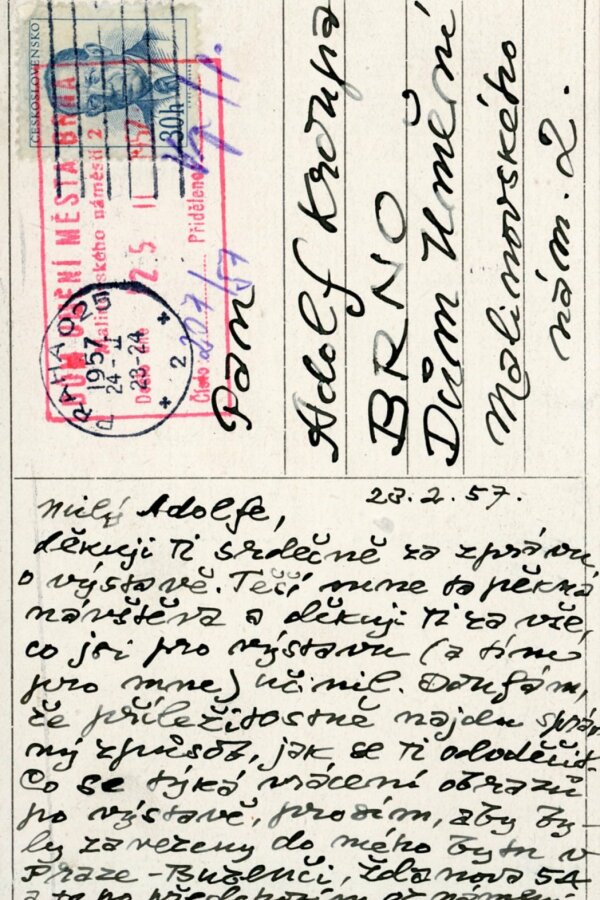 ČESKOSLOVENSKO
30h
DŮM UMĚNÍ MĚSTA BRNA
Malinovského náměstí 2
25 II 1957
Číslo 207/57 Přiděleno
PRAHA 025
1957
24-II
23-24
2
Pan
Adolf Kroupa
BRNO
Dům Umění
Malinovského
nám. 2.
23.2.57.
Milý Adolfe,
děkuji Ti srdečně za zprávu
o výstavě. Těší mne ta pěkná
návštěva a děkuji Ti za vše,
co jsi pro výstavu (a tím i
pro mne) učinil. Doufám,
že příležitostně najdu správ
ný způsob, jak se Ti odvděčit.
Co se týká vrácení obrazů
po výstavě, prosím, aby by
ly zavezeny do mého bytu v
Praze-Bubenči, Ždanova 54
a to po předchozím